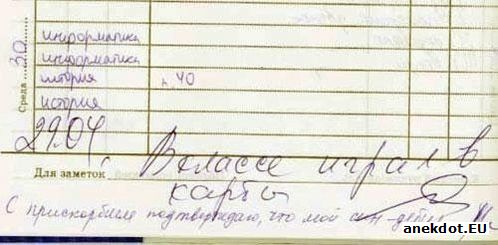 Среда 30
информатика
информатика
история п. 40
история
29.04. В классе играл в
Для заметок
карты
С прискорбием подтверждаю, что мой сын - дебил
anekdot.EU